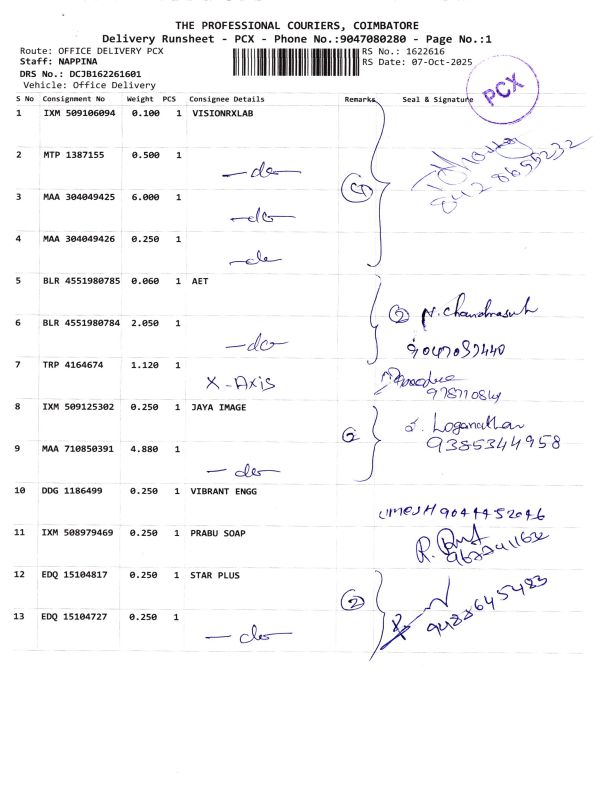 THE PROFESSIONAL COURIERS, COIMBATORE
Delivery Runsheet - PCX - Phone No.:9047080280 - Page No.:1
Route: OFFICE DELIVERY PCX
RS No.: 1622616
Staff: NAPPINA
RS Date: 07-Oct-2025
DRS No.: DCJB162261601
Vehicle: Office Delivery
PCX
S No Consignment No Weight PCS Consignee Details Remarks Seal & Signature
1 IXM 509106094 0.100 1 VISIONRXLAB
2 MTP 1387155 0.500 1
-do-
3 MAA 304049425 6.000 1
-do-
4 MAA 304049426 0.250 1
-do-
5 BLR 4551980785 0.060 1 AET
② N. Chandrasek
6 BLR 4551980784 2.050 1
-do-
7 TRP 4164674 1.120 1
X-AXIS
8 IXM 509125302 0.250 1 JAYA IMAGE
Loganathan
9385344958
9 MAA 710850391 4.880 1
②
-do-
10 DDG 1186499 0.250 1 VIBRANT ENGG
UMESH
11 IXM 508979469 0.250 1 PRABU SOAP
12 EDQ 15104817 0.250 1 STAR PLUS
②
13 EDQ 15104727 0.250 1
-do-